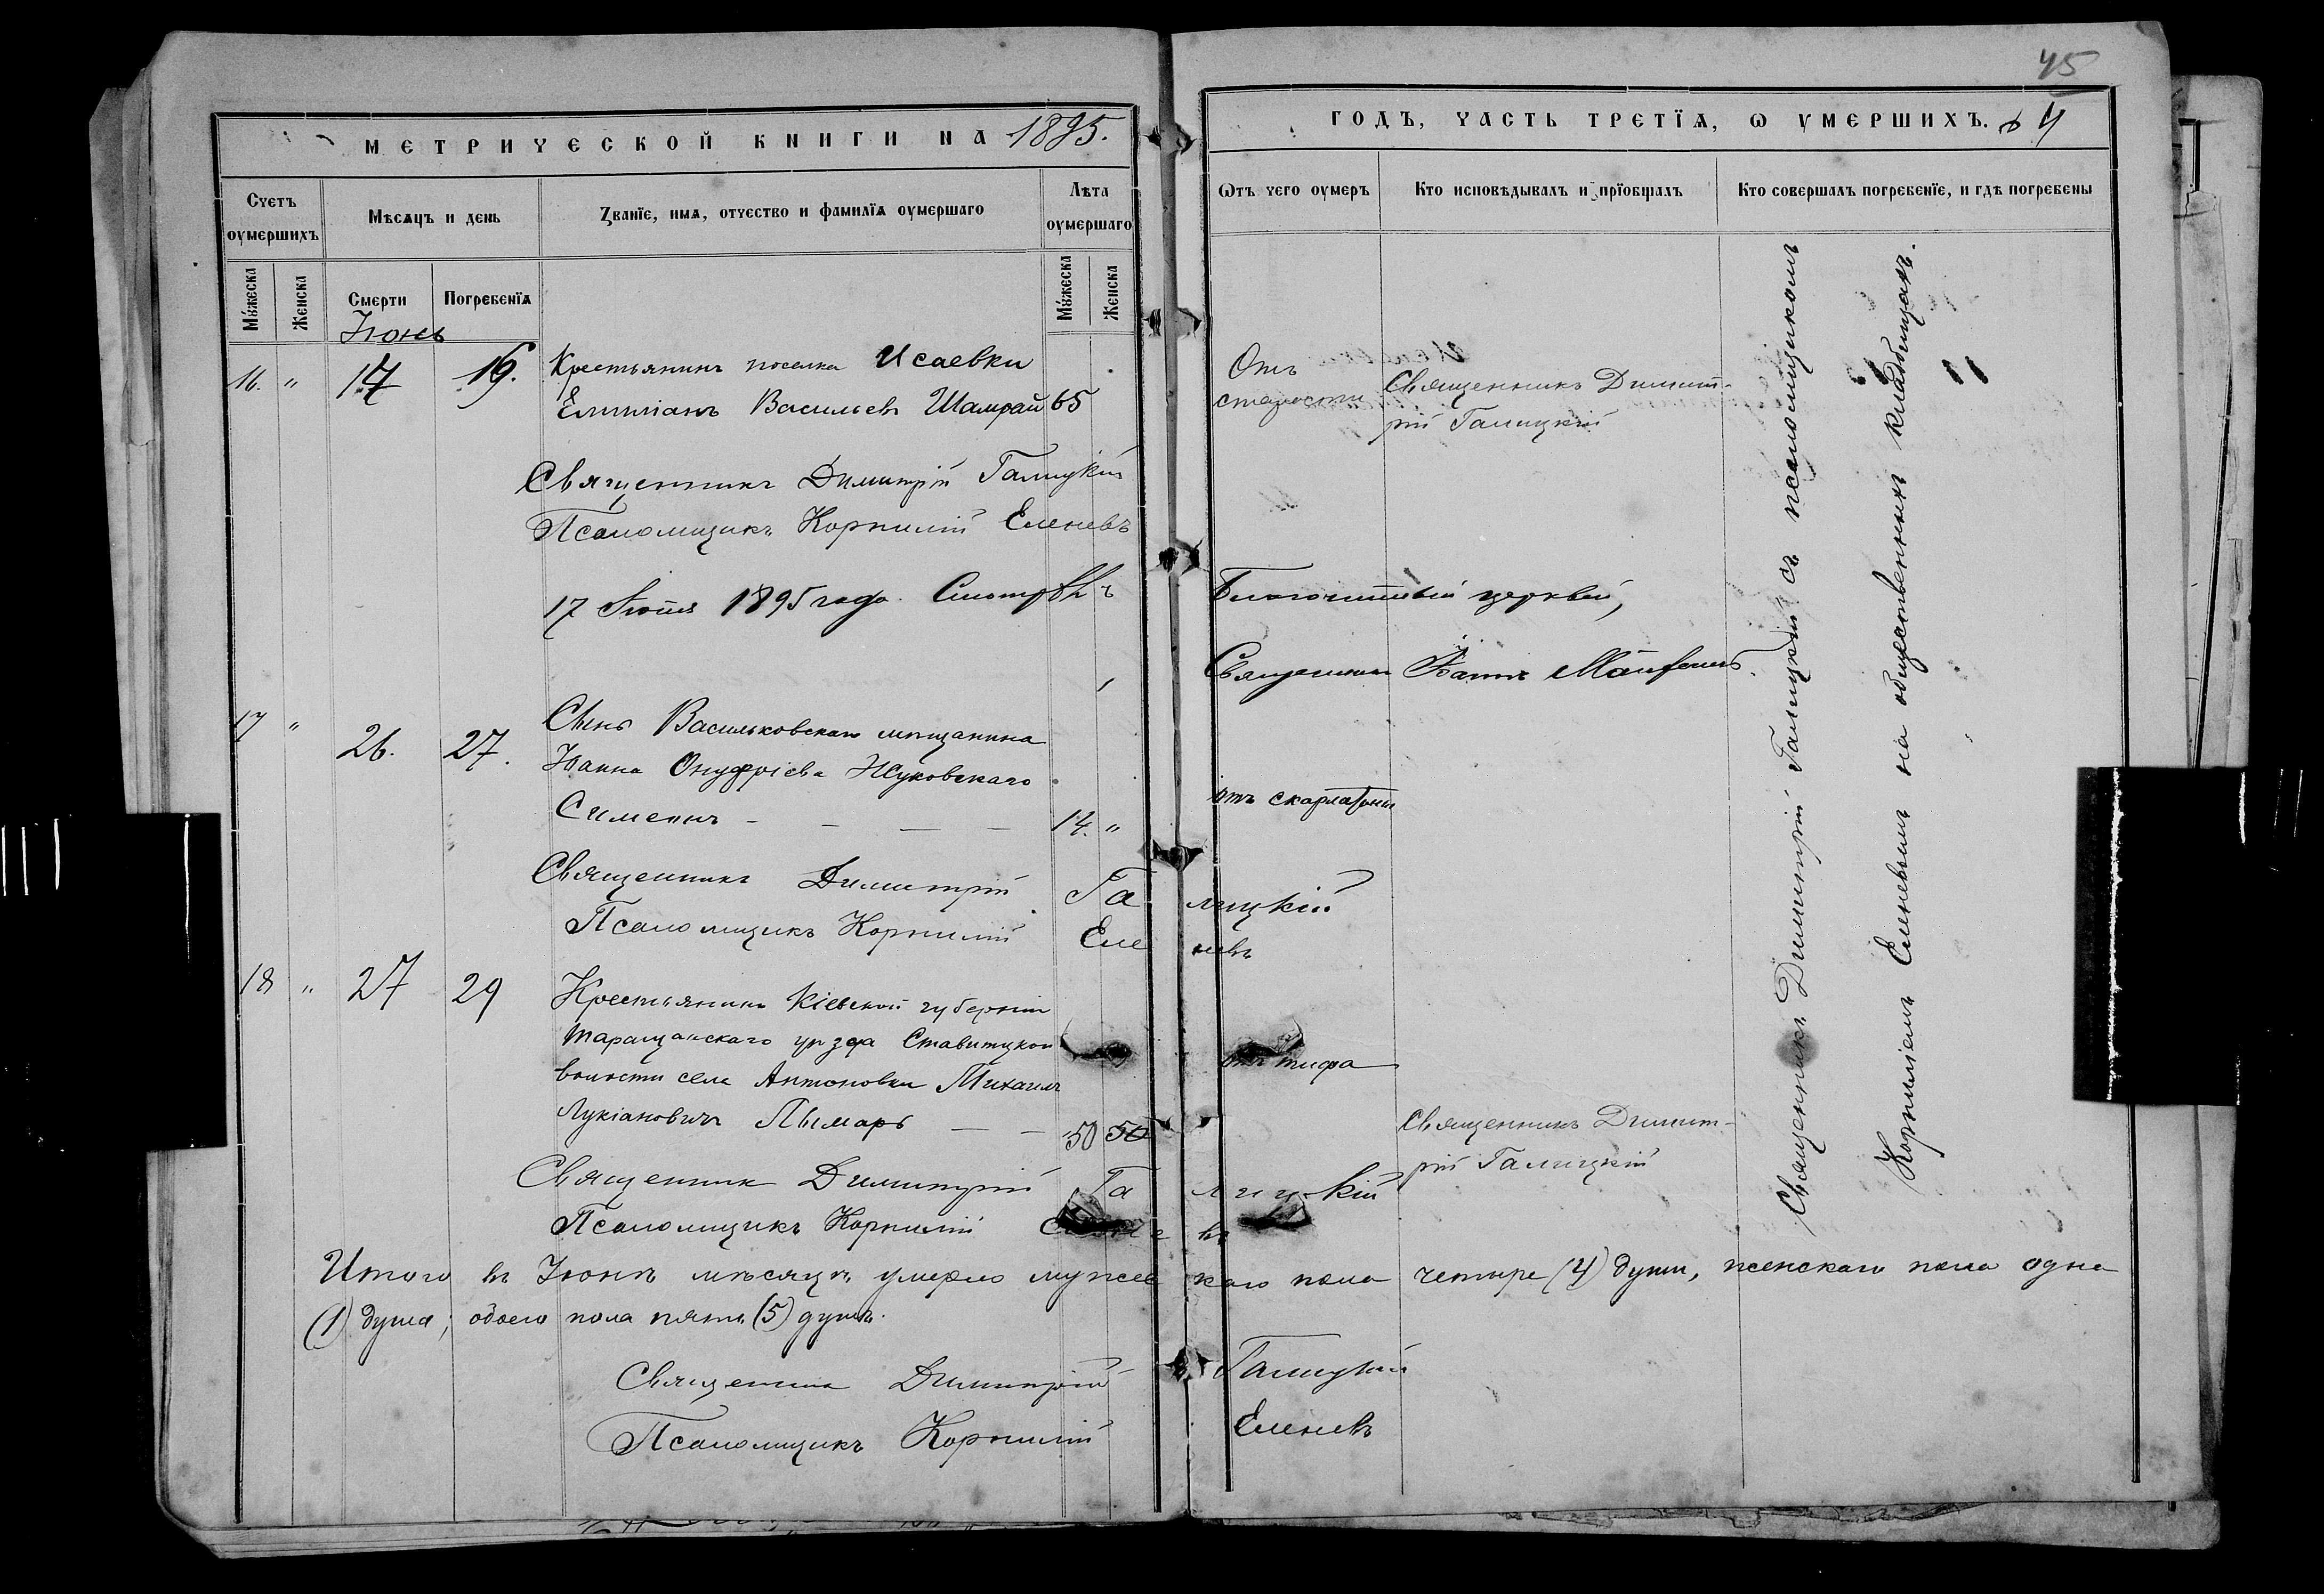 45
МЕТРИЧЕСКОЙ КНИГИ НА 1895.
ГОДЪ, ЧАСТЬ ТРЕТЇѦ, Ѡ УМЕРШИХЪ.
Счетъ оумершихъ
Мѣсѧцъ и день
Званїе, имѧ, отчество и фамилїѧ оумершаго
Лѣта оумершаго
Ѿтъ чего оумеръ
Кто исповѣдывалъ и прїобщалъ
Кто совершалъ погребенїе, и гдѣ погребены
Мꙋжеска
Женска
Смерти
Погребенїѧ
Мꙋжеска
Женска
Іюнь
16. " 14 16. Крестьянинъ поселка Исаевки
Емиліанъ Васильевъ Шамрай 65
Отъ
старости
Священникъ Димит-
рій Галицкій
Священникъ Димитрій Галицкій
Псаломщикъ Корнилій Еленевъ
17 Іюля 1895 года. Смотрѣлъ Благочинный церквей,
Священникъ Іоаннъ
17 " 26. 27. Сынъ Васильковскаго мѣщанина
Іоанна Онуфріева Жуковскаго
Симеонъ - - - - 14. " отъ скарлатины
Священникъ Димитрій Галицкій
Псаломщикъ Корнилій Еленевъ
18 " 27 29 Крестьянинъ Кіевской губерніи
Таращанскаго уѣзда Ставищкой
волости села Антоновки Михаилъ
Лукіановичъ Лымарь — — 50 50
отъ тифа
Священникъ Димит-
рій Галицкій
Священникъ Димитрій Галицкій
Псаломщикъ Корнилій Еленевъ
Священникъ Димитрій Галицкій съ псаломщикомъ
Корниліемъ Еленевымъ на общественныхъ кладбищахъ.
Итого въ Іюнѣ мѣсяцѣ умерло мужескаго пола четыре (4) души, женскаго пола одна
(1) душа; обоего пола пять (5) душъ.
Священникъ Димитрій Галицкій
Псаломщикъ Корнилій Еленевъ